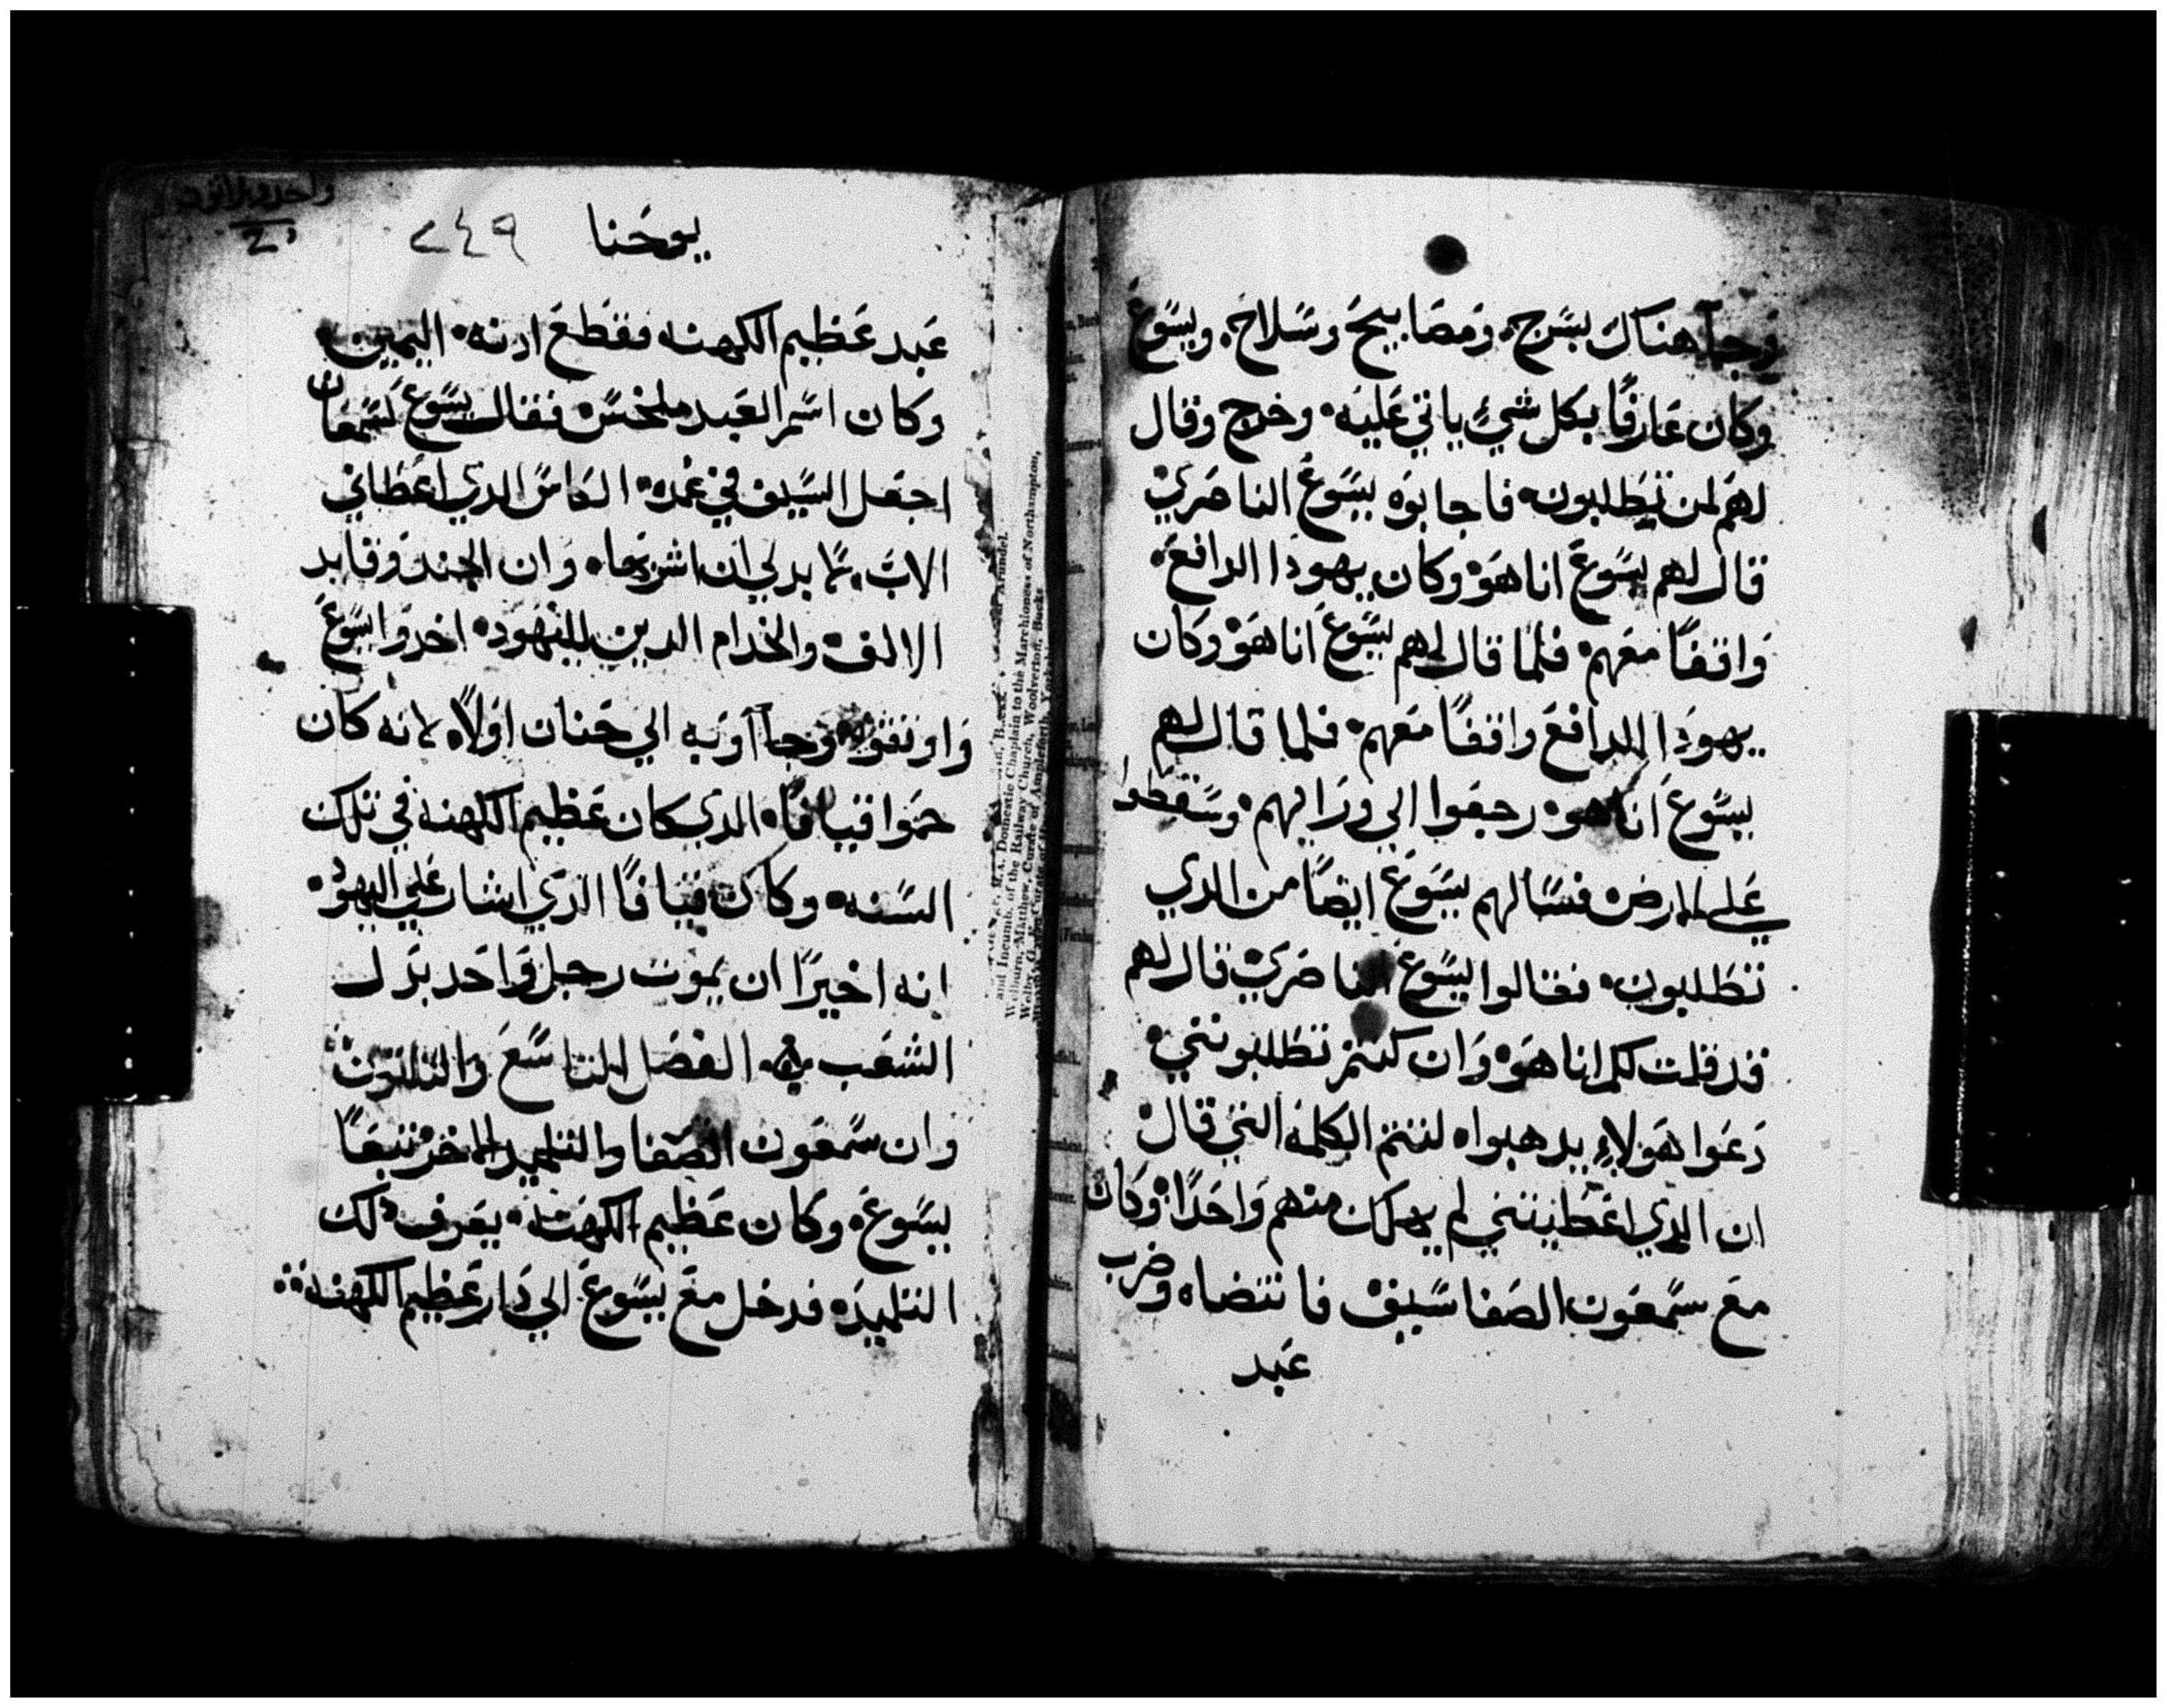 وجآ هناك بسرج، ومصابيح وسلاح، ويسوع
وكان عارفًا بكل شيء ياتي عليه، وخرج وقال
لهم لمن تطلبون، فاجابوه يسوع الناصري
قال لهم يسوع انا هو، وكان يهودا الدافع،
واقفًا معهم، فلما قال لهم يسوع انا هو، وكان
يهودا الدافع واقفًا معهم، فلما قال لهم
يسوع انا هو، رجعوا الي ورايهم، وسقطوا
علي الارض فسالهم يسوع ايضًا من الدي
تطلبون، فقالوا يسوع الناصري، قال لهم
قد قلت لكم انا هو، وان كنتم تطلبونني،
دعوا هولاء يدهبوا، لتتم الكلمة التي قال،
ان الدي اعطيتني لم يهلك منهم واحدًا، وكان
مع سمعون الصفا سيف، فانتضاه وضرب
عبد
يوحنا ٢٤٩
عبد عظيم الكهنه فقطع ادنه، اليمين،
وكان اسم العبد ملخس، فقال يسوع لسمعان
اجعل السيف في غمده، الكاس الدي اعطاني
الاب، ما بد لي ان اشربها، وان الجند وقايد
الالف، والخدام الدين لليهود، اخدوا يسوع
واوثقوه، وجآآوا به الي حنان اولًا، لانه كان
حموا قيافا، الدي كان عظيم الكهنه في تلك
السنه، وكان قيافا الدي اشار علي اليهود،
انه اخيرًا ان يموت رجل واحد بدل
الشعب، الفصل التاسع والتلتون
وان سمعون الصفا والتلميد الاخر تبعًا
يسوع، وكان عظيم الكهنه، يعرف دلك
التلميد، فدخل مع يسوع الي دار عظيم الكهنه